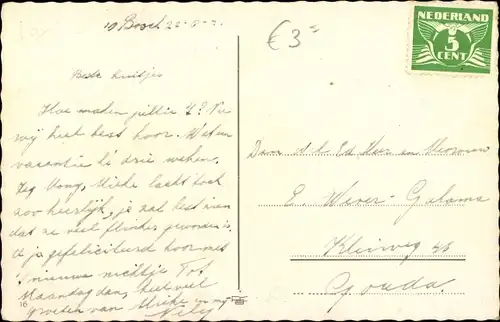 Bosch 22-8-
€ 3=
NEDERLAND
5
CENT
Beste luitjes
Hoe maken jullie 't? Nu
wij heel best hoor. We
vacantie drie weken.
Zeg Vony, Mieke lacht toch
zoo heerlijk, je zal best zien
dat ze veel flinker geworden is.
ja gefeliciteerd hoor met
't nieuwe nichtje Tot
Maandag dan, heel veel
groeten van Mieke en mij
Nelly
16
Den Heer en Mevrouw
E. Wever - Galama
Kleiweg
Gouda